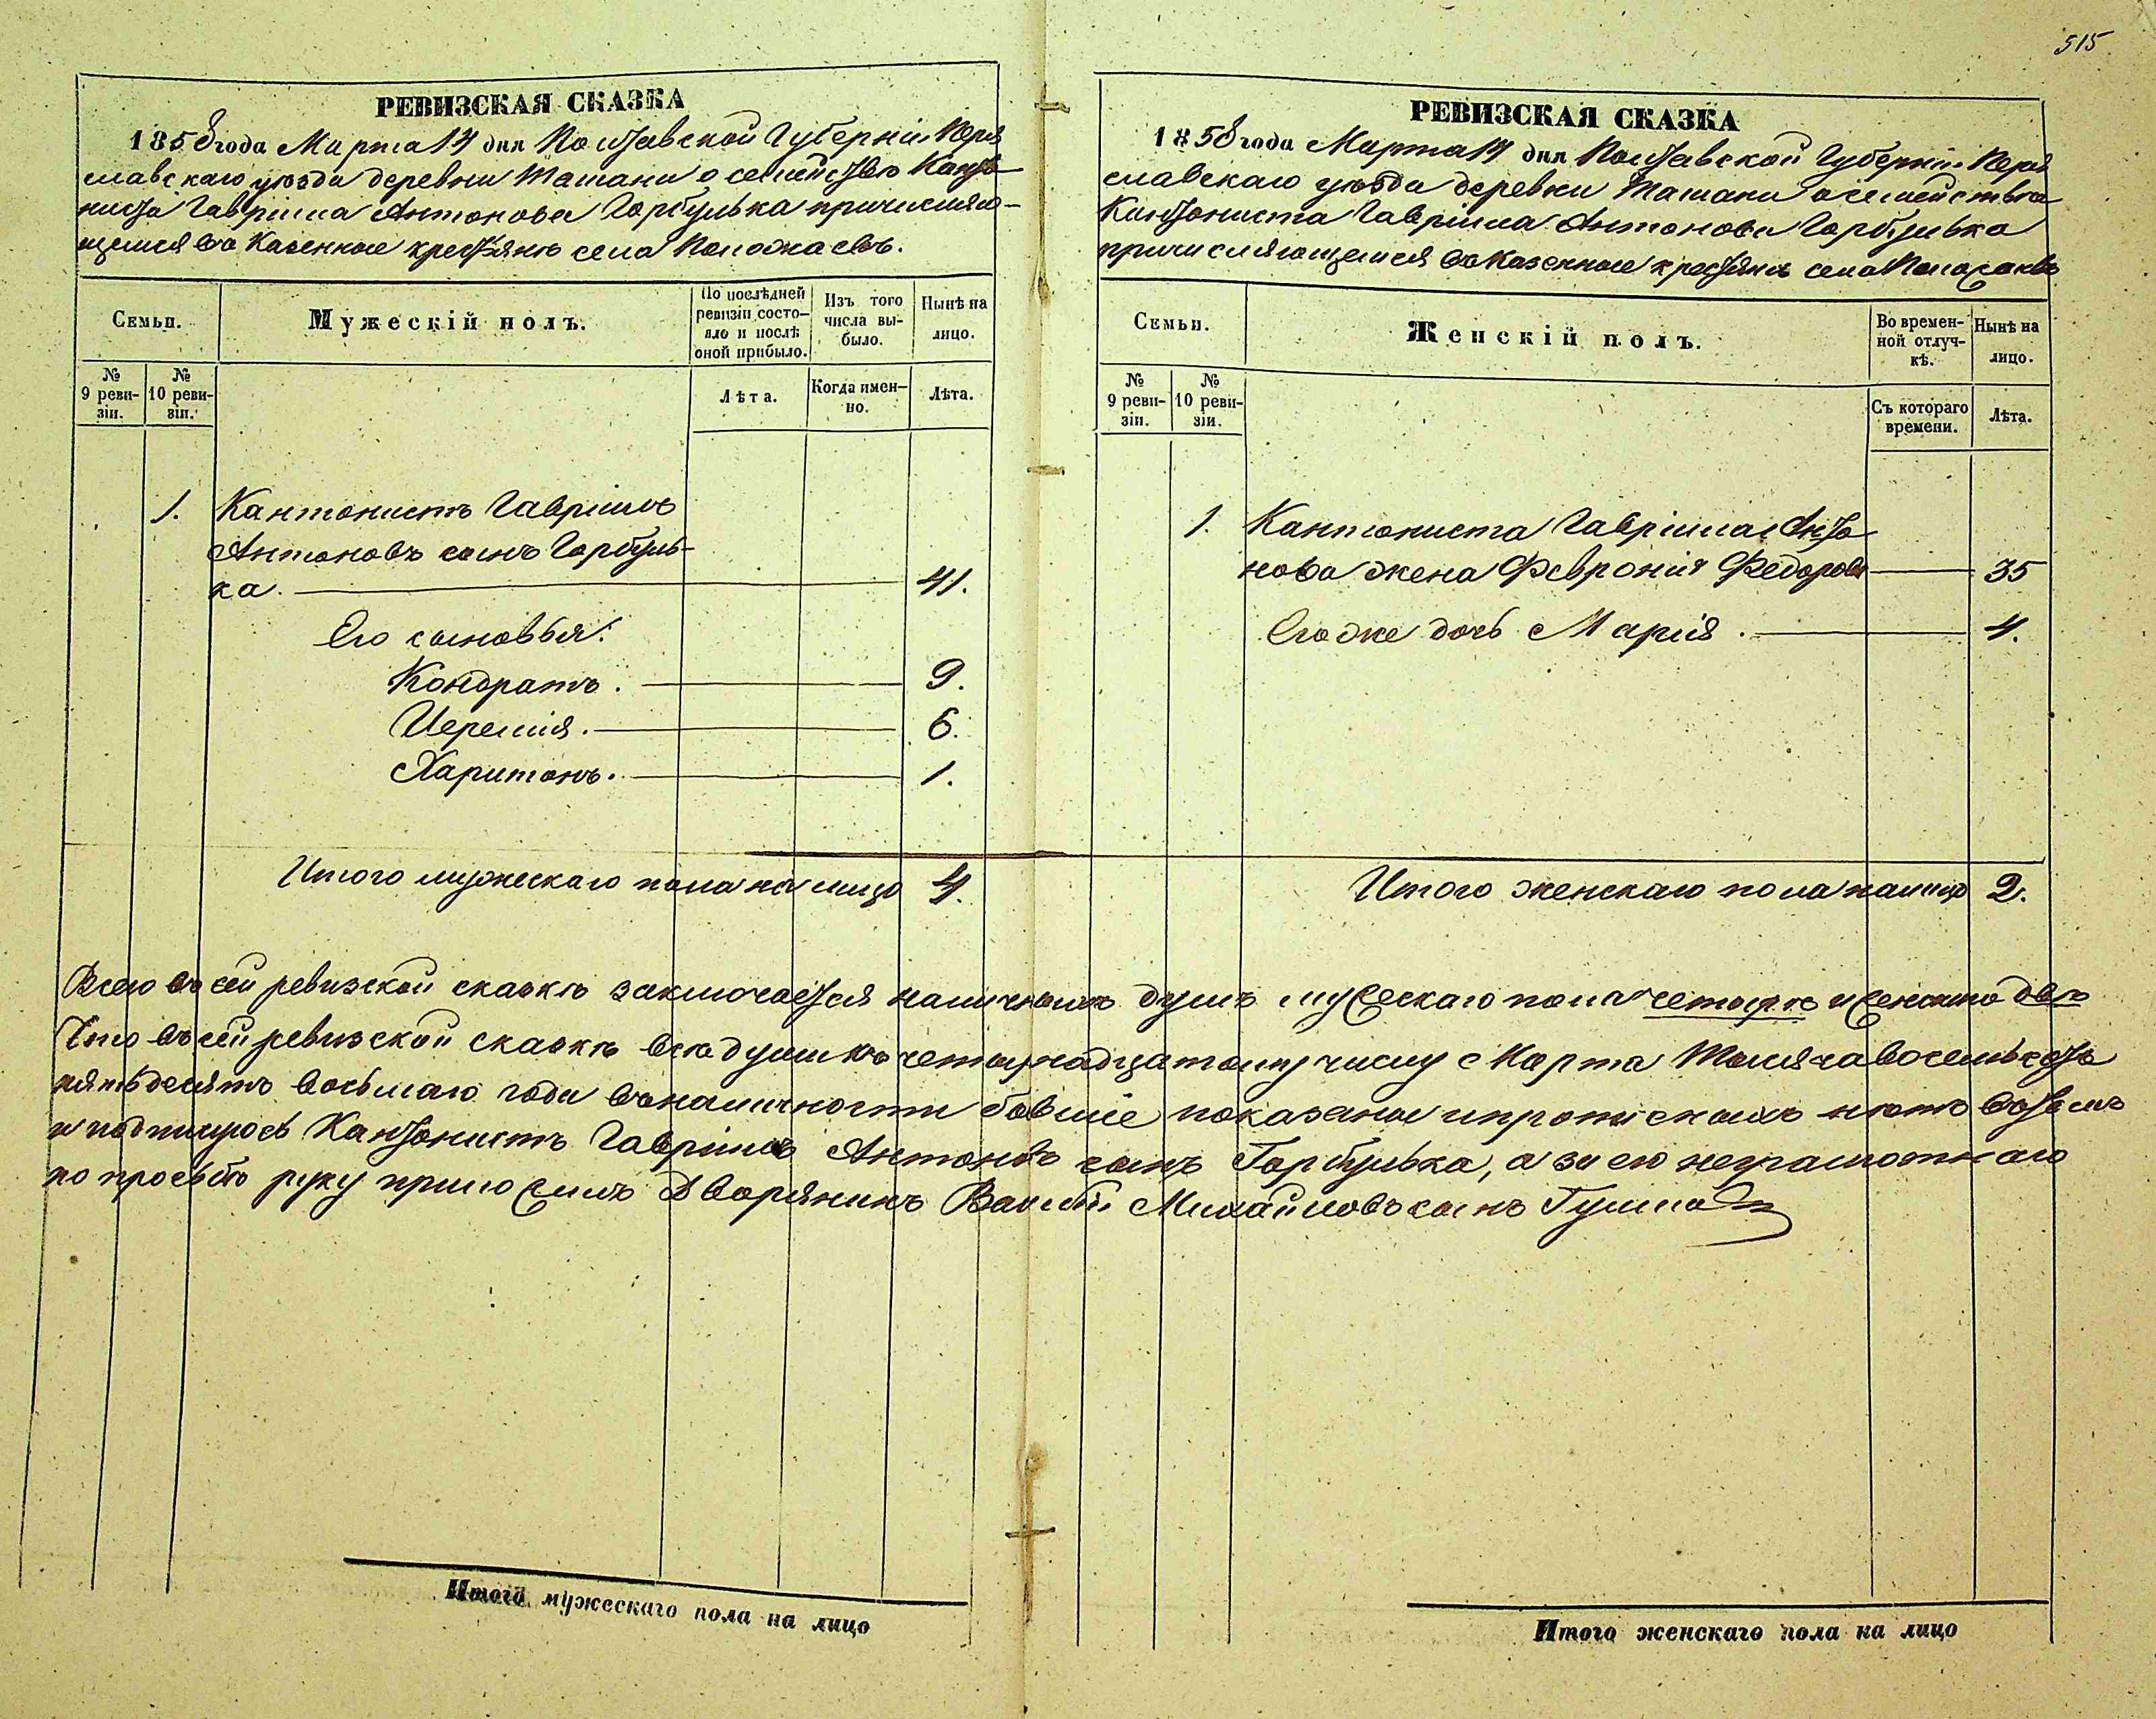 515
РЕВИЗСКАЯ СКАЗКА
1858 года Марта 14 дня Полтавской Губерніи Перя
славскаго уѣзда деревни Ташани о семействѣ Канто-
ниста Гавріила Антонова Горбулька причисляю-
щемся въ Казенные крестьянѣ села
Семьи.
Мужескій полъ.
По послѣдней ревизіи состо-
яло и послѣ оной прибыло.
Изъ того числа вы-
было.
Нынѣ на лицо.
№ 9 реви-
зіи.
№ 10 реви-
зіи.
Лѣта.
Когда имен-
но.
Лѣта.
1. Кантонистъ Гавріилъ
Антоновъ сынъ Горбуль-
ка. 41.
Его сыновья:
Кондратъ. 9.
Иеремія. 6.
Харитонъ. 1.
Итого мужескаго пола на лицо 4.
РЕВИЗСКАЯ СКАЗКА
1858 года Марта 14 дня Полтавской Губерніи Перя
славскаго уѣзда деревни Ташани о семействѣ
Кантониста Гавріила Антонова Горбулька
причисляющемся въ Казенные крестьянѣ села
Семьи.
Женскій полъ.
Во времен-
ной отлуч-
кѣ.
Нынѣ на лицо.
№ 9 реви-
зіи.
№ 10 реви-
зіи.
Съ котораго времени.
Лѣта.
1. Кантониста Гавріила Анто
нова жена Февронія Федорова 35
Его же дочь Марія. 4.
Итого женскаго пола на лицо 2.
Всего въ сей ревизской сказкѣ заключается наличныхъ душъ мужескаго пола четыре и женскаго двѣ
Что въ сей ревизской сказкѣ всѣ души къ четырнадцатому числу Марта Тысяча восемьсотъ
пятьдесятъ восьмаго года въ наличности бывшіе показаны и прописныхъ нѣтъ въ томъ
и подпишуюсь Кантонистъ Гавріилъ Антоновъ сынъ Горбулька, а за его неграмотнаго
по просьбѣ руку приложилъ Дворянинъ Василій Михайловъ сынъ
Итого мужескаго пола на лицо
Итого женскаго пола на лицо